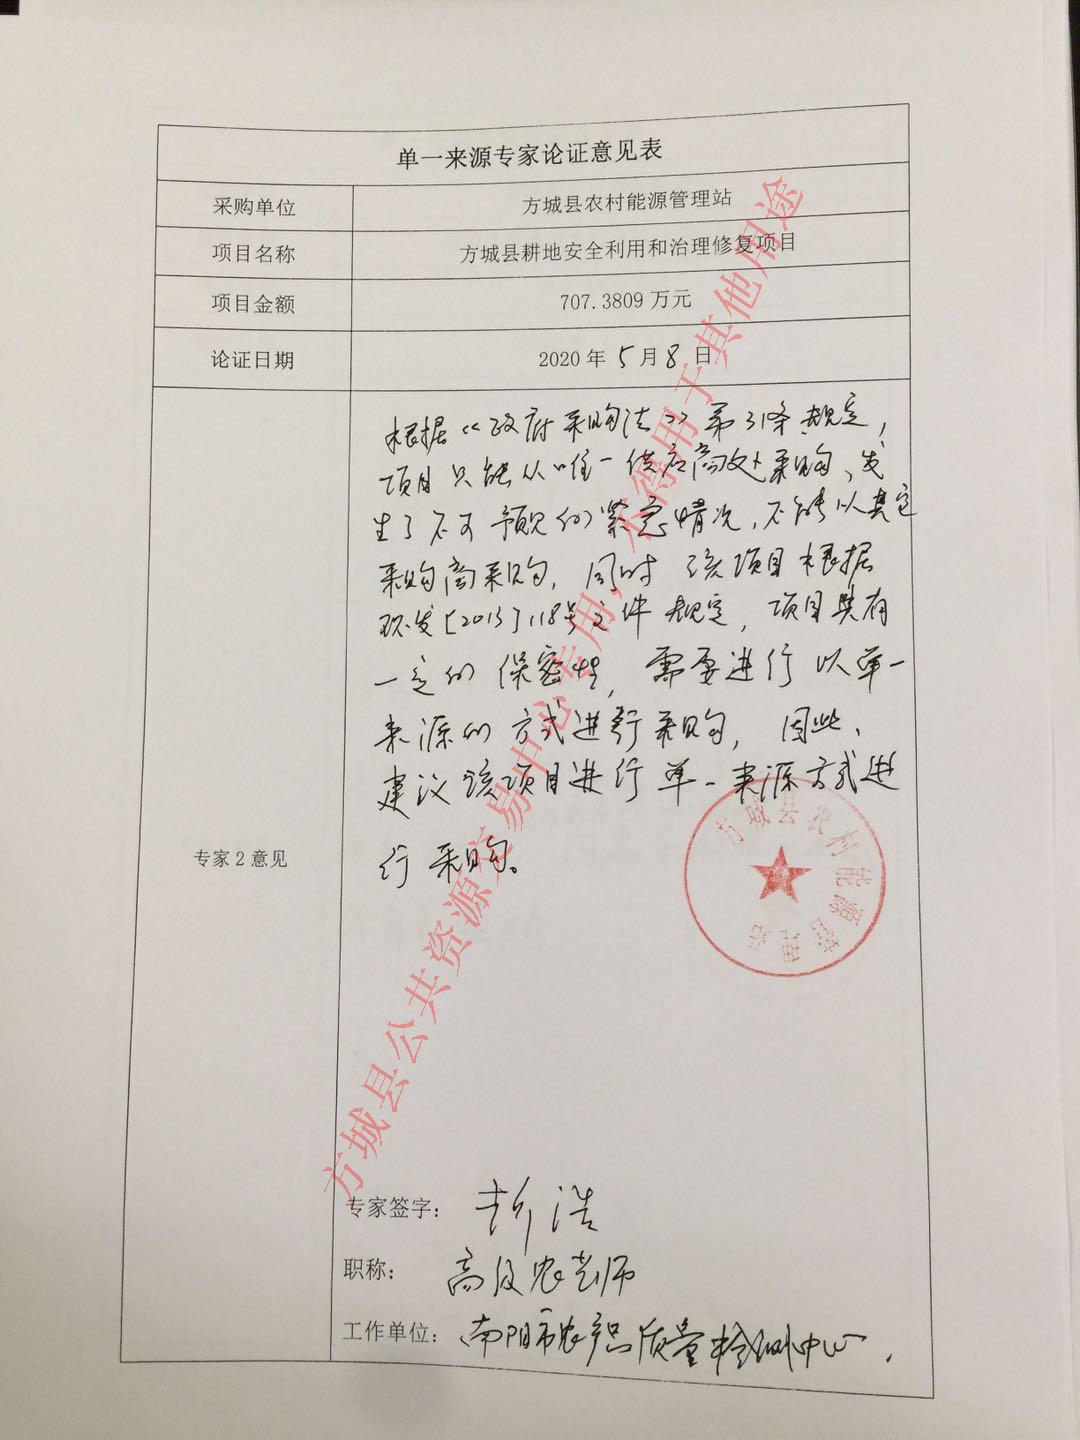 单一来源专家论证意见表
采购单位 方城县农村能源管理站
项目名称 方城县耕地安全利用和治理修复项目
项目金额 707.3809万元
论证日期 2020年5月8日
专家2意见
根据《政府采购法》第31条规定，
项目只能从唯一供应商处采购、发
生了不可预见的紧急情况，不能从其它
采购商采购，同时 该项目根据
环发[2015]118号文件规定，项目具有
一定的保密性，需要进行以单一
来源的方式进行采购，因此、
建议该项目进行单一来源方式进
行采购。
方城县农村能源管理站
专家签字： 浩
职称： 高级农艺师
工作单位：南阳市农产品质量检测中心.
方城县公共资源交易中心专用，不得用于其他用途